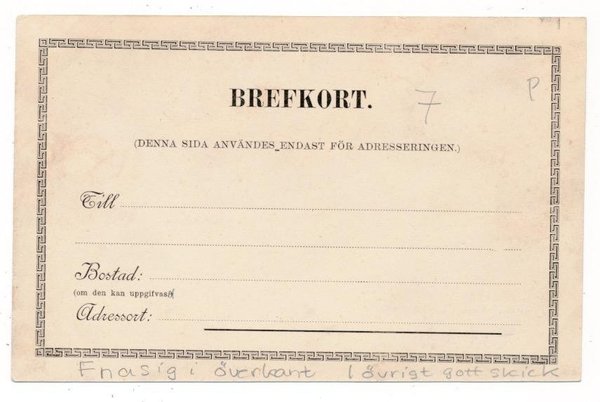 BREFKORT.
7
P
(DENNA SIDA ANVÄNDES ENDAST FÖR ADRESSERINGEN.)
Till
Bostad:
(om den kan uppgifvas)
Adressort:
Fnasig i överkant I övrigt gott skick